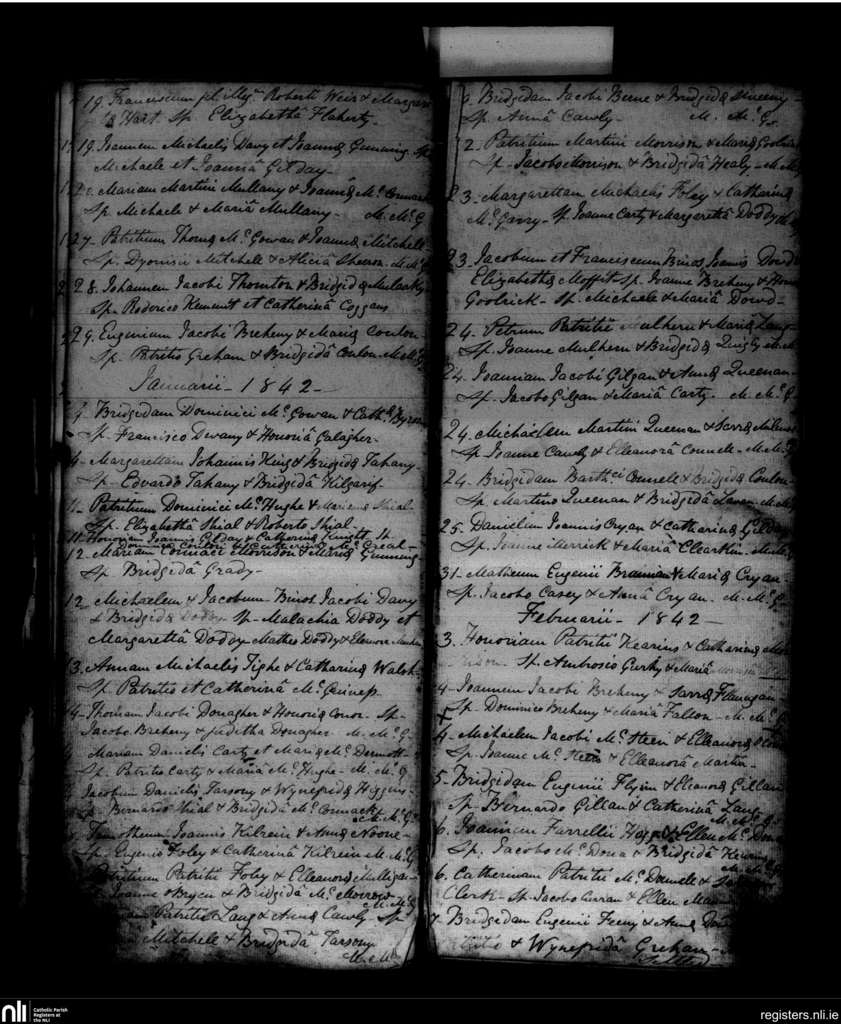 19. Franciscum fil. Mgt. Roberti Weir & Margar
Hart Sp. Elizabethâ Flaherty-
19. Joannem Michaelis Davy et Joannæ Gunning Sp
Michaele et Joannâ Gilday-
Mariam Martini Mullany & Joannæ Mc. Cormack
Sp. Michaele & Mariâ Mullany- M. Mc. G
27- Patritium Thomæ Mc. Gowan & Joannæ Mitchell
Sp. Dyonisii Mitchele & Aliciâ Sheeron- M. Mc
28. Johannem Jacobi Thornton & Bridgidæ Mullarky
Sp. Roderico et Catherinâ Coggans
29. Eugenium Jacobi Breheny & Mariæ Conlon-
Sp. Patritio Greham & Bridgidâ Conlon- M. Mc. G
Januarii- 1842-
4. Bridgidam Dominici Mc. Gowan & Cathæ Byrne
Sp. Francisco Devany & Honoriâ Galagher-
4- Margarettam Johannis King & Bridgidæ Tahany-
Sp- Edvardo Tahany & Bridgidâ Kilgarif-
11- Patritium Dominici Mc. Hughe & Shial-
Sp. Elizabethâ Shial & Roberto Shial-
11. Honoriam Joannis Gilday & Catherinæ Knight Sp.
12- Mariam Cormaci Morrison & Mariæ Gunning
Sp. Bridgidâ Grady-
12. Michaelem & Jacobum Binos Jacobi Davy
& Bridgidæ Doddy Sp- Malachia Doddy et
Margarettâ Doddy- Matheo Doddy & Elenore
13. Annam Michaelis Tighe & Catharinæ Walsh-
Sp. Patritio et Catherinâ Mc. Guiness-
14- Thomam Jacobi Donagher & Honoriæ Conor- Sp-
Jacobo Breheny & Juditha Donagher- M. Mc. G-
Mariam Danielis Carty et Mariæ Mc. Dermott-
Sp. Patritio Carty & Mariâ Mc. Hughe- M. Mc. G
Jacobum Danielis Tarsony & Wynefridæ Higgins-
Sp. Bernardo Shial & Bridgidâ Mc. Cormack-
M. Mc. G-
Timotheum Joannis Kilrein & Annæ Noone-
Sp. Eugenio Foley & Catherinâ Kilrein M. Mc. G
Patritium Patritii Foley & Elleanoræ Mulligan-
Joanne O'Bryen & Bridgidâ Mc. Morrow-
M. Mc. G
Patritii Lang & Annæ Cawly- Sp.
Mitchele & Bridgidâ Tarsony
M. Mc
Bridgidam Jacobi Berne & Bridgidæ Sweeny-
Sp. Annâ Cawly- M. Mc. G-
2. Patritium Martini Morrison & Mariæ Goolrick
Sp- Jacobo Morrison & Bridgidâ Healy- M. Mc
23- Margarettam Michaelis Foley & Catharinæ
Mc. Garry- Sp. Joanne Carty & Margarettâ Doddy
23. Jacobum et Franciscum Binos Joannis Dowd
Elizabethæ Moffit- Sp. Joanne Breheny &
Goolrick- Sp. Michaele & Mariâ Dowd-
24- Petrum Patritii Mulhern & Mariæ Lang-
Sp. Joanne Mulhern & Bridgidâ Quigly M. Mc
24. Joannam Jacobi Gilgan & Annæ Queenan-
Sp. Jacobo Gilgan & Mariâ Carty. M. Mc. G
24- Michaelem Martini Queenan & Sarræ
Sp. Joanne Cawly & Elleanorâ Connele- M. Mc. G
24- Bridgidam Barthci Connele & Bridgidæ Conlon-
Sp. Martino Queenan & Bridgidâ M. Mc
25. Danielem Joannis Cryan & Catharinæ Gilday
Sp. Joanne Merrick & Mariâ Clearkin- M. Mc
31- Matheum Eugenii & Mariæ Cryan-
Sp. Jacobo Casey & Annâ Cryan. M. Mc. G
Februarii- 1842-
3. Honoriam Patritii Kearins & Catharinæ
Sp. Ambrosio & Mariâ
4- Joannem Jacobi Breheny & Sarræ Flanagan
Sp- Dominico Breheny & Maria Fallon- M. Mc. G
4- Michaelem Jacobi Mc. Steen & Elleanoræ
Sp. Joanne Mc. Steen & Elleanorâ Martin-
5- Bridgidam Eugenii Flyin & Eleanoræ Gillan
Sp. Bernardo Gillan & Catherinâ Lang-
M. Mc. G-
6. Joannem Farrelli & Ellen Mc. Dona
Sp. Jacobo Mc. Dona & Bridgidâ
M. Mc. G
6. Catherinam Patritii Mc. Daniele &
Clerk- Sp. Jacobo Curran & Ellen
7. Bridgidam Eugenii Feeny & Annæ
& Wynefridâ Grehan-
nli
Catholic Parish
Registers at
the NLI
registers.nli.ie